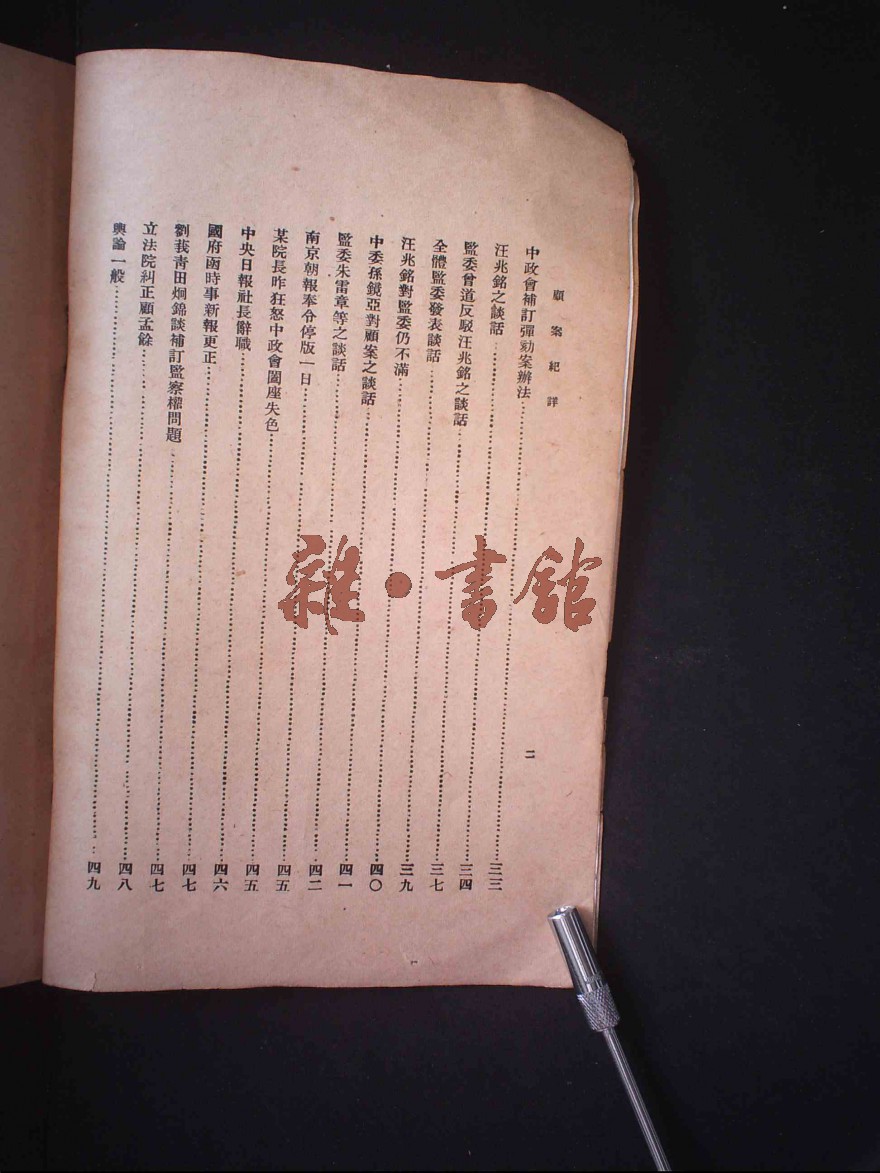 顧案紀詳 二
中政會補訂彈劾案辦法……三三
汪兆銘之談話……三四
監委曾道反駁汪兆銘之談話……三七
全體監委發表談話……三九
汪兆銘對監委仍不滿……四〇
中委孫鏡亞對顧案之談話……四一
監委朱雷章等之談話……四二
南京朝報奉令停版一日……四五
某院長昨狂怒中政會闔座失色……四五
中央日報社長辭職……四六
國府函時事新報更正……四七
劉莪青田炯錦談補訂監察權問題……四七
立法院糾正顧孟餘……四八
輿論一般……四九
雜·書館